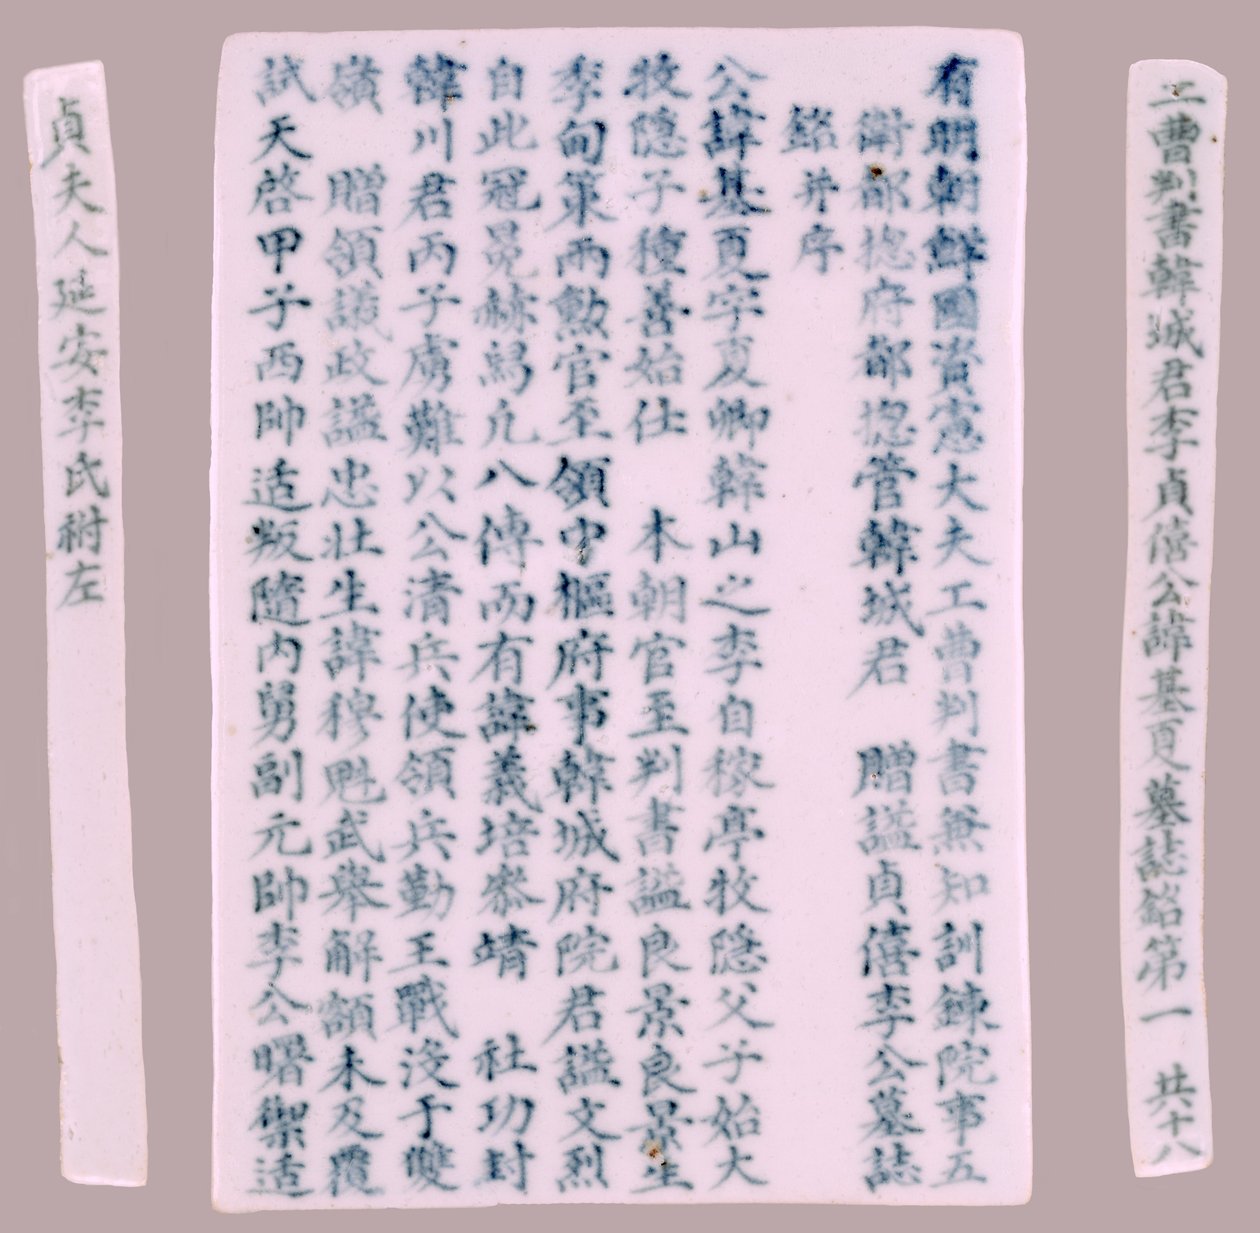 工曹判書韓城君李貞僖公諱基夏墓誌銘第一 共十八
有明朝鮮國資憲大夫工曹判書兼知訓鍊院事五
衛都摠府都摠管韓城君 贈諡貞僖李公墓誌
銘并序
公諱基夏字夏卿韓山之李自稼亭牧隐父子始大
牧隐子種善始仕 本朝官至判書諡良景良景生
季甸策兩勲官至領中樞府事韓城府院君諡文烈
自此冠冕赫舄凢八傳而有諱義培叅靖 社功封
韓川君丙子虜難以公清兵使領兵勤王戰沒于雙
嶺 贈領議政諡忠壯生諱穆魁武舉解額未及覆
試天啓甲子西帥适叛隨內舅副元帥李公曙禦适
貞夫人延安李氏祔左